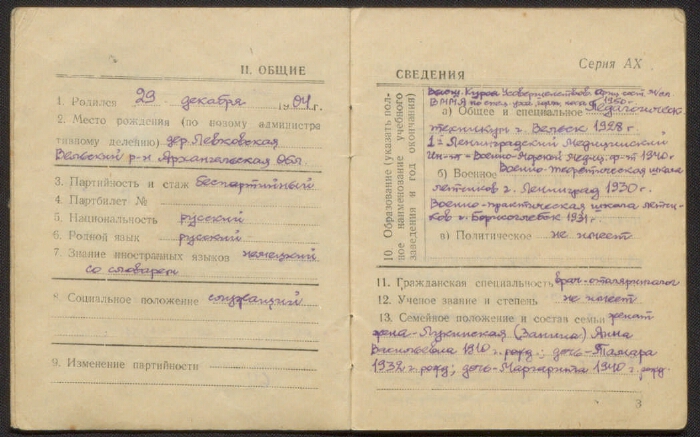 II. ОБЩИЕ
1. Родился 29 декабря 1904 г.
2. Место рождения (по новому администра
тивному делению) дер. Левковская
Вельский р-н Архангельская обл.
3. Партийность и стаж беспартийный
4. Партбилет №
5. Национальность русский
6. Родной язык русский
7. Знание иностранных языков немецкий
со словарем
8. Социальное положение служащий
9. Изменение партийности
Серия АХ
СВЕДЕНИЯ
10. Образование (указать пол-
ное наименование учебного
заведения и год окончания)
Курсы Усовершенствов.
1960 г.
а) Общее и специальное Педагогическ.
техникум г. Вельск 1928 г.
1й Ленинградский Медицинский
Ин-т Военно-Морской Медиц. ф-т 1940 г.
б) Военное Военно-теоретическая школа
летчиков г. Ленинград 1930 г.
Военно-практическая школа летчи-
ков г. Борисоглебск 1931 г.
в) Политическое не имеет
11. Гражданская специальность врач-отоляринголог
12. Ученое звание и степень не имеет
13. Семейное положение и состав семьи женат
жена-Лукинская (Занина) Анна
Васильевна 1910 г. рожд.; дочь-Тамара
1932 г. рожд; дочь-Маргарита 1940 г. рожд.
3